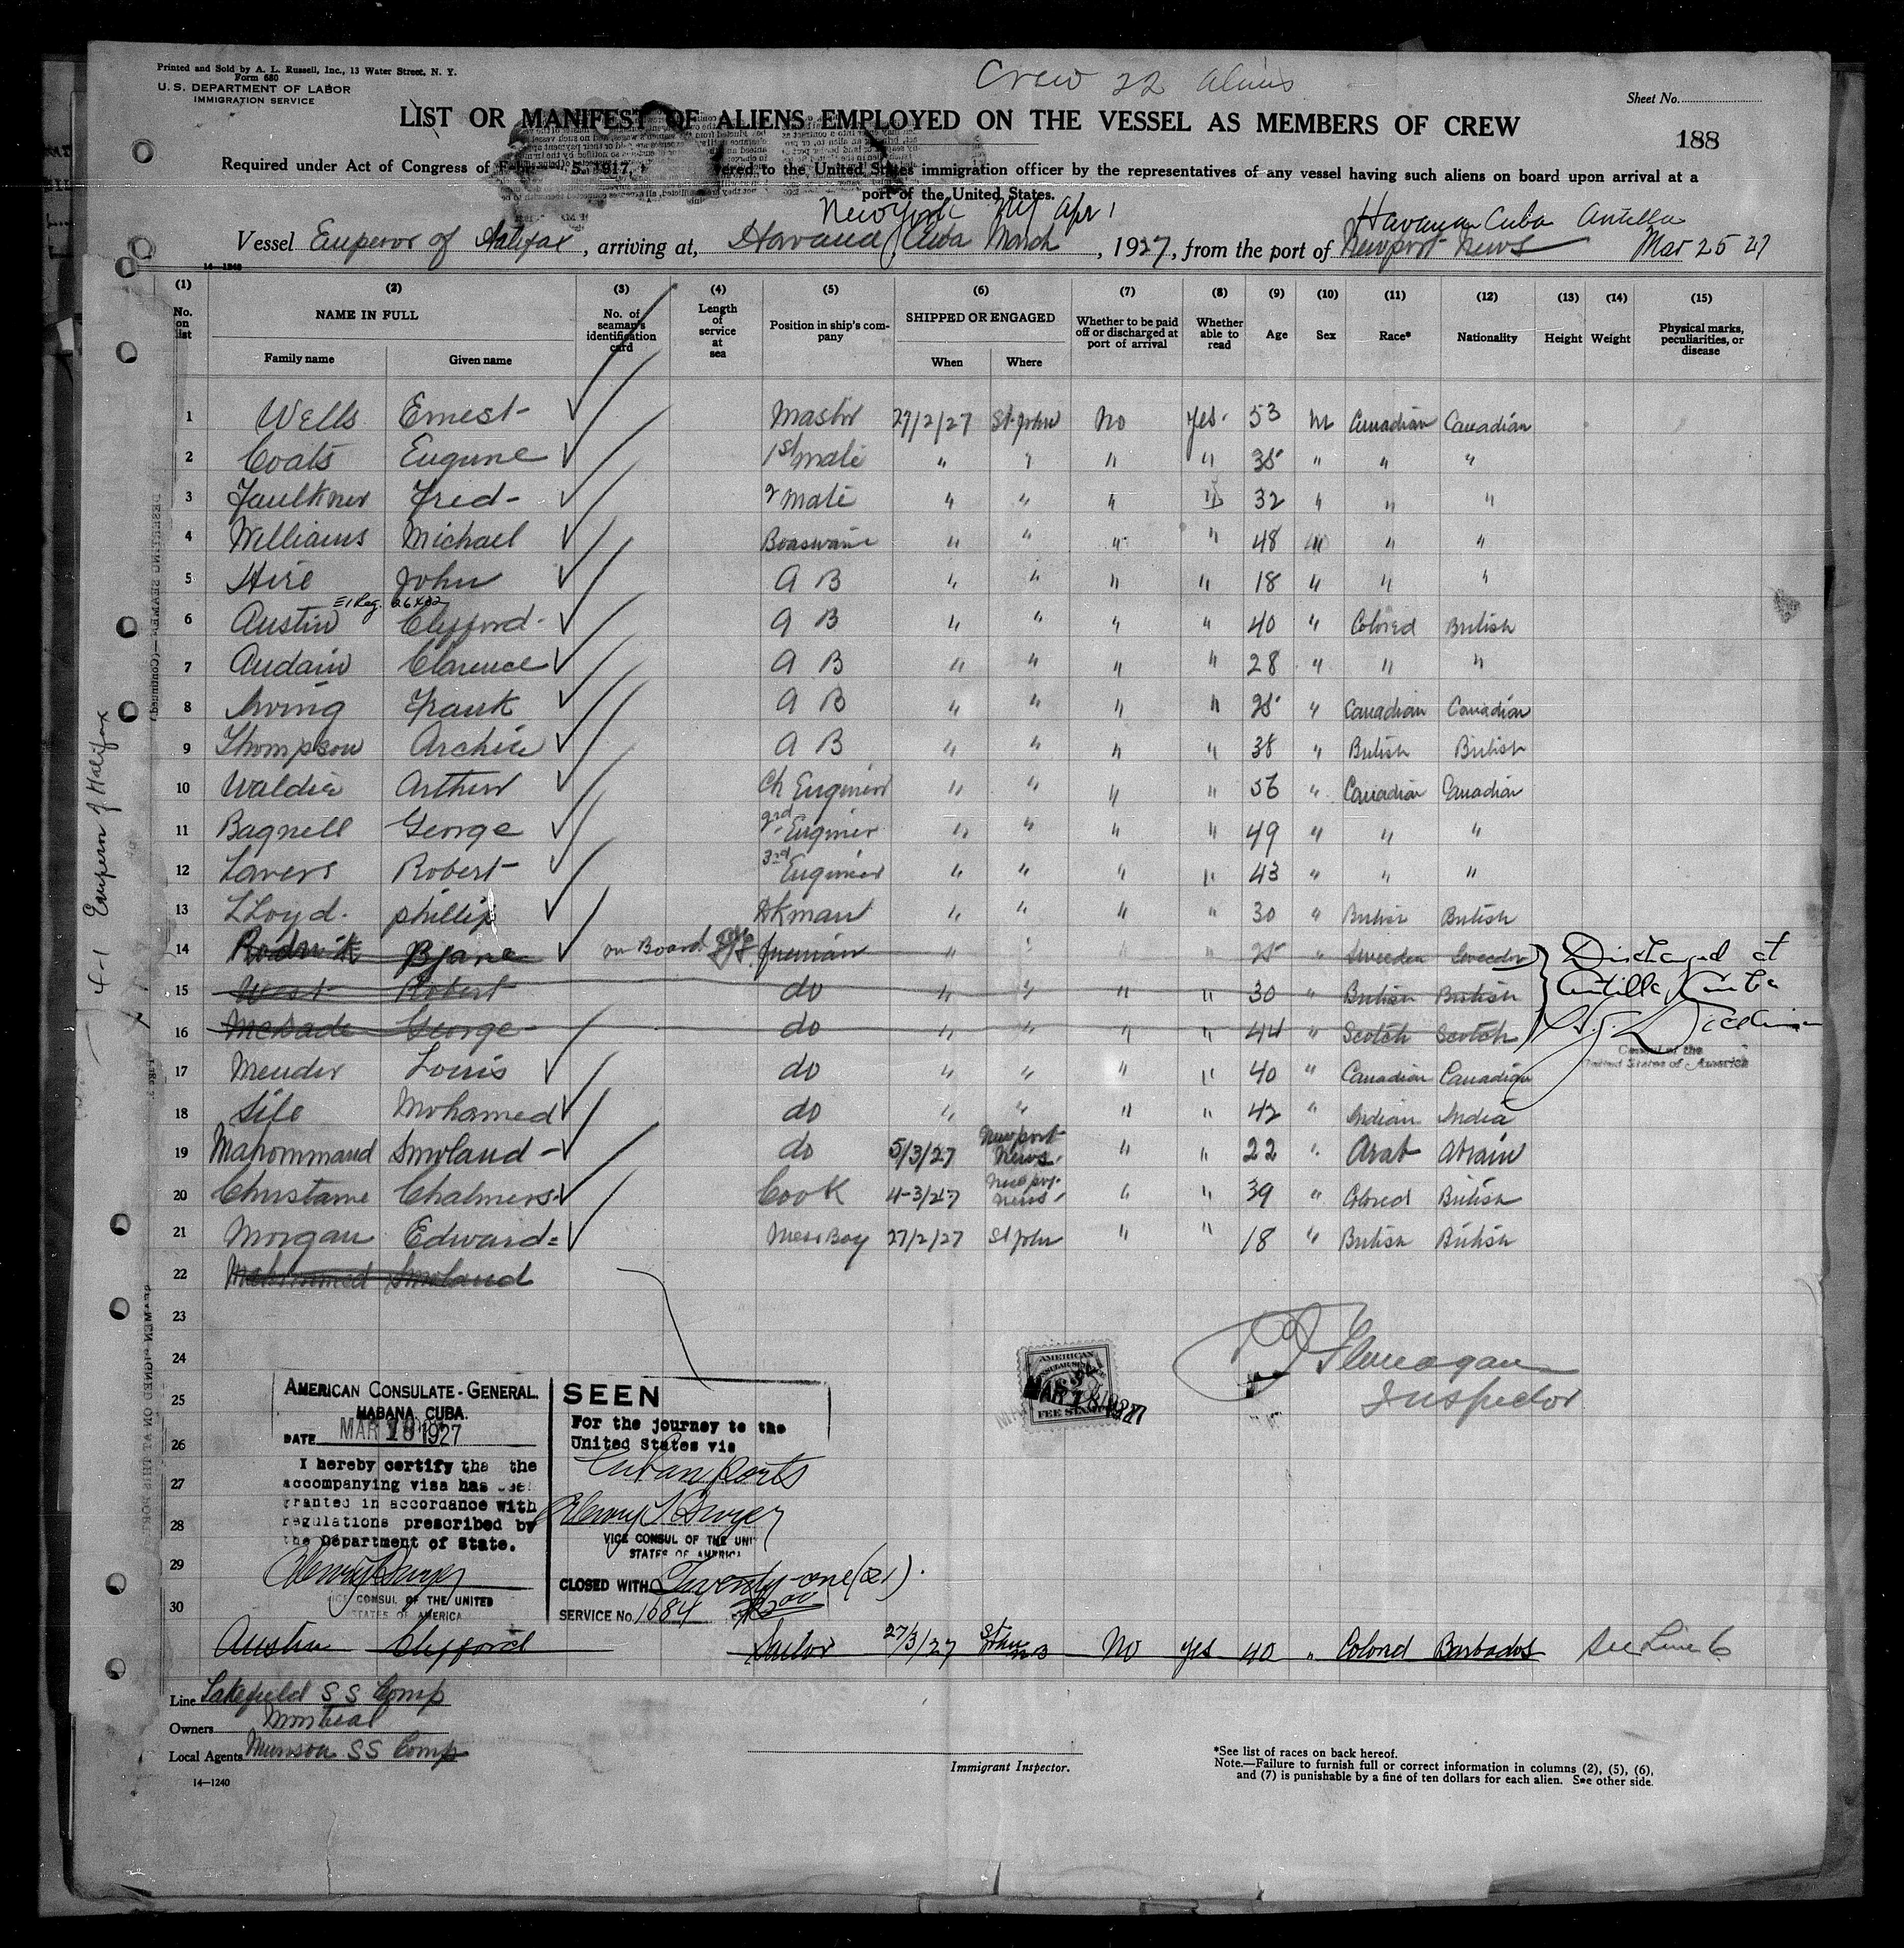 Printed and Sold by A. L. Russell, Inc., 13 Water Street, N. Y.
Form 680
U. S. DEPARTMENT OF LABOR
IMMIGRATION SERVICE
Crew 22 aliens
Sheet No.
LIST OR MANIFEST OF ALIENS EMPLOYED ON THE VESSEL AS MEMBERS OF CREW
188
Required under Act of Congress of 5, 1917, to the United States immigration officer by the representatives of any vessel having such aliens on board upon arrival at a
port of the United States.
New York NY Apr 1
Havana Cuba Antilla
Vessel Emperor of Halifax, arriving at, Havana, Cuba March, 1927, from the port of Newport News Mar 25 27
14-1240
(1) (2) (3) (4) (5) (6) (7) (8) (9) (10) (11) (12) (13) (14) (15)
No. on list NAME IN FULL No. of seaman's identification card Length of service at sea Position in ship's company SHIPPED OR ENGAGED Whether to be paid off or discharged at port of arrival Whether able to read Age Sex Race* Nationality Height Weight Physical marks, peculiarities, or disease
Family name Given name When Where
1 Wells Ernest Master 27/2/27 St. John No Yes 53 M Canadian Canadian
2 Coats Eugene 1st Mate " " " " 35 " " "
3 Faulkner Fred 2 Mate " " " " 32 " " "
4 Williams Michael Boaswain " " " " 48 M " "
5 Hire John A B " " " " 18 " " "
E1 Reg.
6 Austin Clifford A B " " " " 40 " Colored British
7 Audain Clarence A B " " " " 28 " " "
8 Irving Frank A B " " " " 25 " Canadian Canadian
9 Thompson Archie A B " " " " 38 " British British
10 Waldie Arthur Ch Engineer " " " " 56 " Canadian Canadian
11 Bagnell George 2nd Enginer " " " " 49 " " "
12 Lavers Robert 3rd Engineer " " " " 43 " " "
13 LLoyd. phillip Dkman " " " " 30 " British British
14 Bjane on Board fireman " " " " 25 " Sweeden Sweeden Discharged at
15 West Robert do " " " " 30 " British British Antilla, Cuba
16 McDade George do " " " " 44 " Scotch Scotch
Consul of the
United States of America
17 Mender Louis do " " " " 40 " Canadian Canadian
18 Sile Mohamed do " " " " 42 " Indian India
19 Mahommand Smoland do 5/3/27 Newport News " " 22 " Arab
20 Christanie Chalmers Cook 4-3/27 Newport News " " 39 " Colored British
21 Morgan Edward Mess Boy 27/2/27 St John " " 18 " British British
22 Mahommed Smoland
23
24
25
26
27
28
29
30
Flanagan
Inspector
AMERICAN CONSULATE-GENERAL.
HABANA, CUBA.
DATE MAR 18 1927
I hereby certify tha the
accompanying visa has
granted in accordance with
regulations prescribed by
the Department of State.
VICE CONSUL OF THE UNITED
STATES OF AMERICA
SEEN
For the journey to the
United States via
Cuban Ports
VICE CONSUL OF THE UNI
STATES OF AMERICA
CLOSED WITH Twenty-one (21).
SERVICE No. 1684
AMERICAN
CONSULAR SERVICE
MAR 18 1927
FEE STAMP
Austin Clifford Sailor 27/3/27 St John NB No Yes 40 " Colored Barbados See Line 6
Line Lakefield S S Comp
Owners Montreal
Local Agents Munson SS Comp
14-1240
Immigrant Inspector.
*See list of races on back hereof.
Note.—Failure to furnish full or correct information in columns (2), (5), (6),
and (7) is punishable by a fine of ten dollars for each alien. See other side.
4-1 Emperor of Halifax